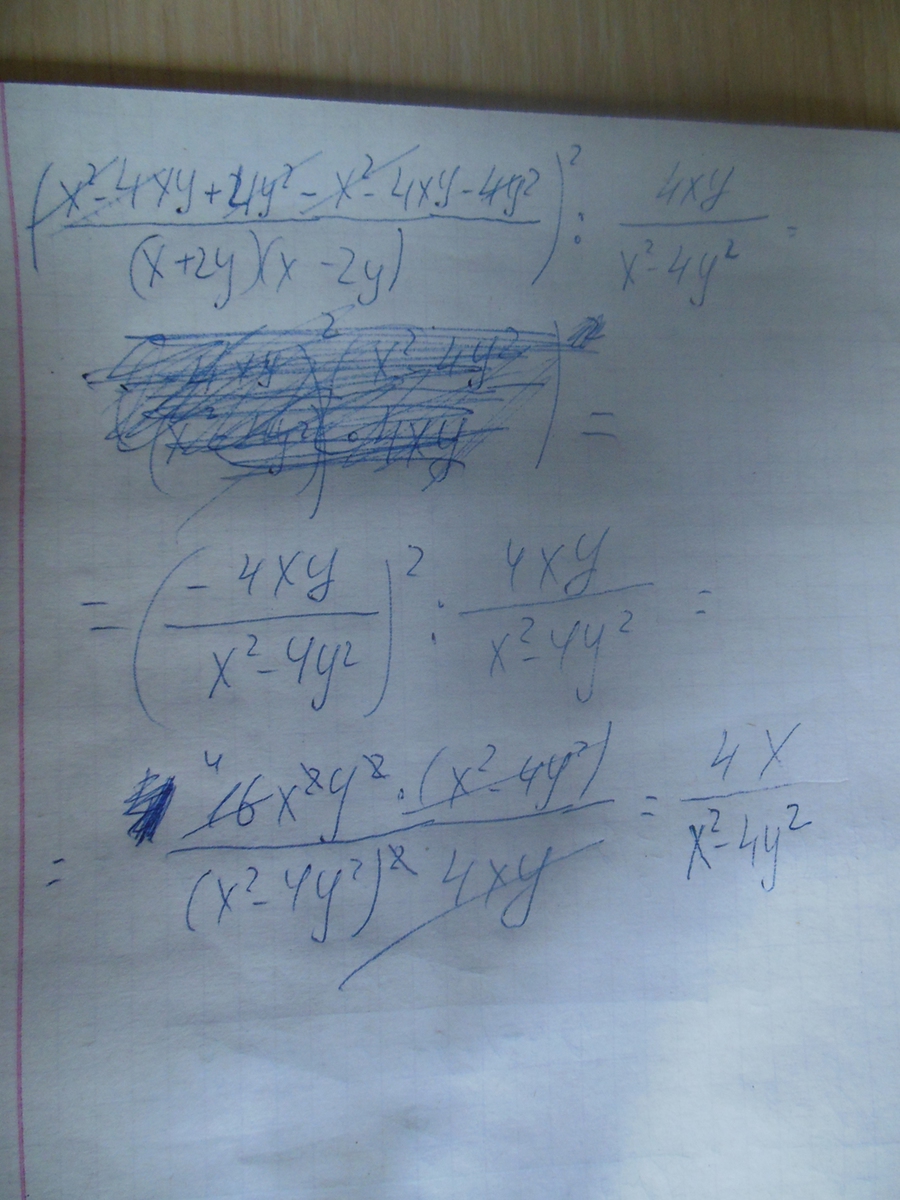 (x² - 4xy + 4y² - x² - 4xy - 4y² / (x + 2y)(x - 2y))² : 4xy / x² - 4y² =
(4xy)² (x² - 4y²) / (x² - 4y²) · 4xy) =
= (- 4xy / x² - 4y²)² : 4xy / x² - 4y² =
= 4 16x²y² · (x² - 4y²) / (x² - 4y²)² 4xy = 4x / x² - 4y²